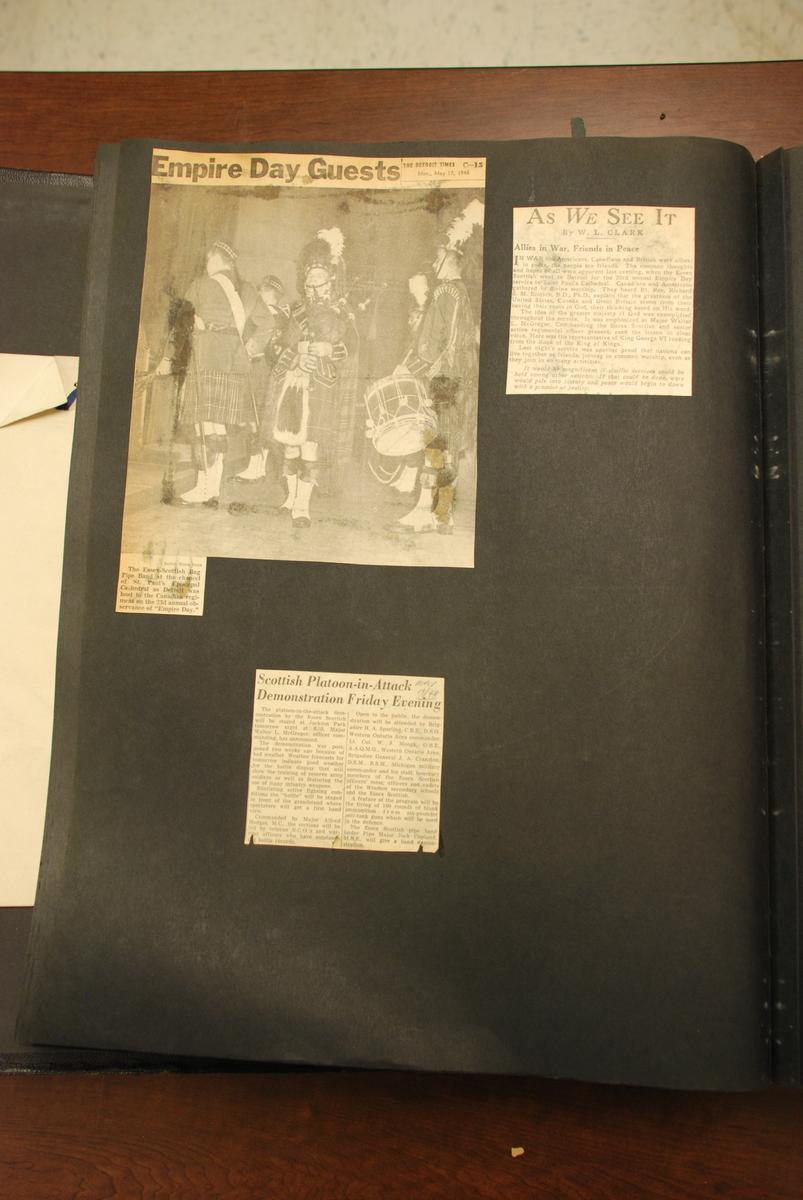 Empire Day Guests
THE DETROIT TIMES C—15
Mon., May 17, 1948
The Essex-Scottish Bag
Pipe Band at the chancel
of St. Paul's Episcopal
Cathedral as Detroit was
host to the Canadian regi-
ment on the 23d annual ob-
servance of "Empire Day."
AS WE SEE IT
By W. L. CLARK
Allies in War, Friends in Peace
IN WAR the Americans, Canadians and British were allies;
in peace, the people are friends. The common thoughts
and hopes of all were apparent last evening, when the Essex
Scottish went to Detroit for the 23rd annual Empire Day
service in Saint Paul's Cathedral. Canadians and Americans
gathered in divine worship. They heard Rt. Rev. Richard
S. M. Emrich, D.D., Ph.D., explain that the greatness of the
United States, Canada and Great Britain stems from their
having their roots in God, their thinking based on His word.
The idea of the greater majesty of God was exemplified
throughout the service. It was emphasized as Major Walter
L. McGregor, Commanding the Essex Scottish and senior
active regimental officer present, read the lesson in clear
voice. Here was the representative of King George VI reading
from the Book of the King of Kings.
Last night's service was another proof that nations can
live together as friends, joining in common worship, even as
they join in so many activities.
It would be magnificent if similar services could be
held among other nations. If that could be done, wars
would pale into history and peace would begin to dawn
with a promise of reality.
Scottish Platoon-in-Attack
Demonstration Friday Evening
The platoon-in-the-attack dem-
onstration by the Essex Scottish
will be staged at Jackson Park
tomorrow night at 8.30, Major
Walter L. McGregor, officer com-
manding, has announced.
The demonstration was post-
poned two weeks ago because of
bad weather. Weather forecasts for
tomorrow indicate good weather
for the battle display that will
show the training of reserve army
soldiers as well as featuring the
use of many infantry weapons.
Simulating active fighting con-
ditions the "battle" will be staged
in front of the grandstand where
spectators will get a first hand
view.
Commanded by Major Alfred
Hodges, M.C., the sections will be
led by veteran N.C.O.'s and war-
rant officers who have
battle records.
Open to the public, the demon-
stration will be attended by Brig-
adier H. A. Sparling, C.B.E., D.S.O.,
Western Ontario Area commander;
Lt. Col. W. J. Mough, O.B.E.,
A.A.Q.M.G., Western Ontario Area;
Brigadier General J. A. Crandon,
D.S.M., B.S.M., Michigan military
commander and his staff, honorary
members of the Essex Scottish
officers' mess; officers and cadets
of the Windsor secondary schools
and the Essex Scottish.
A feature of the program will be
the firing of 100 rounds of blank
ammunition from six-pounder
anti-tank guns which will be used
in the defence.
The Essex Scottish pipe band
under Pipe Major Jack Copland,
M.B.E., will give a band demon-
stration.